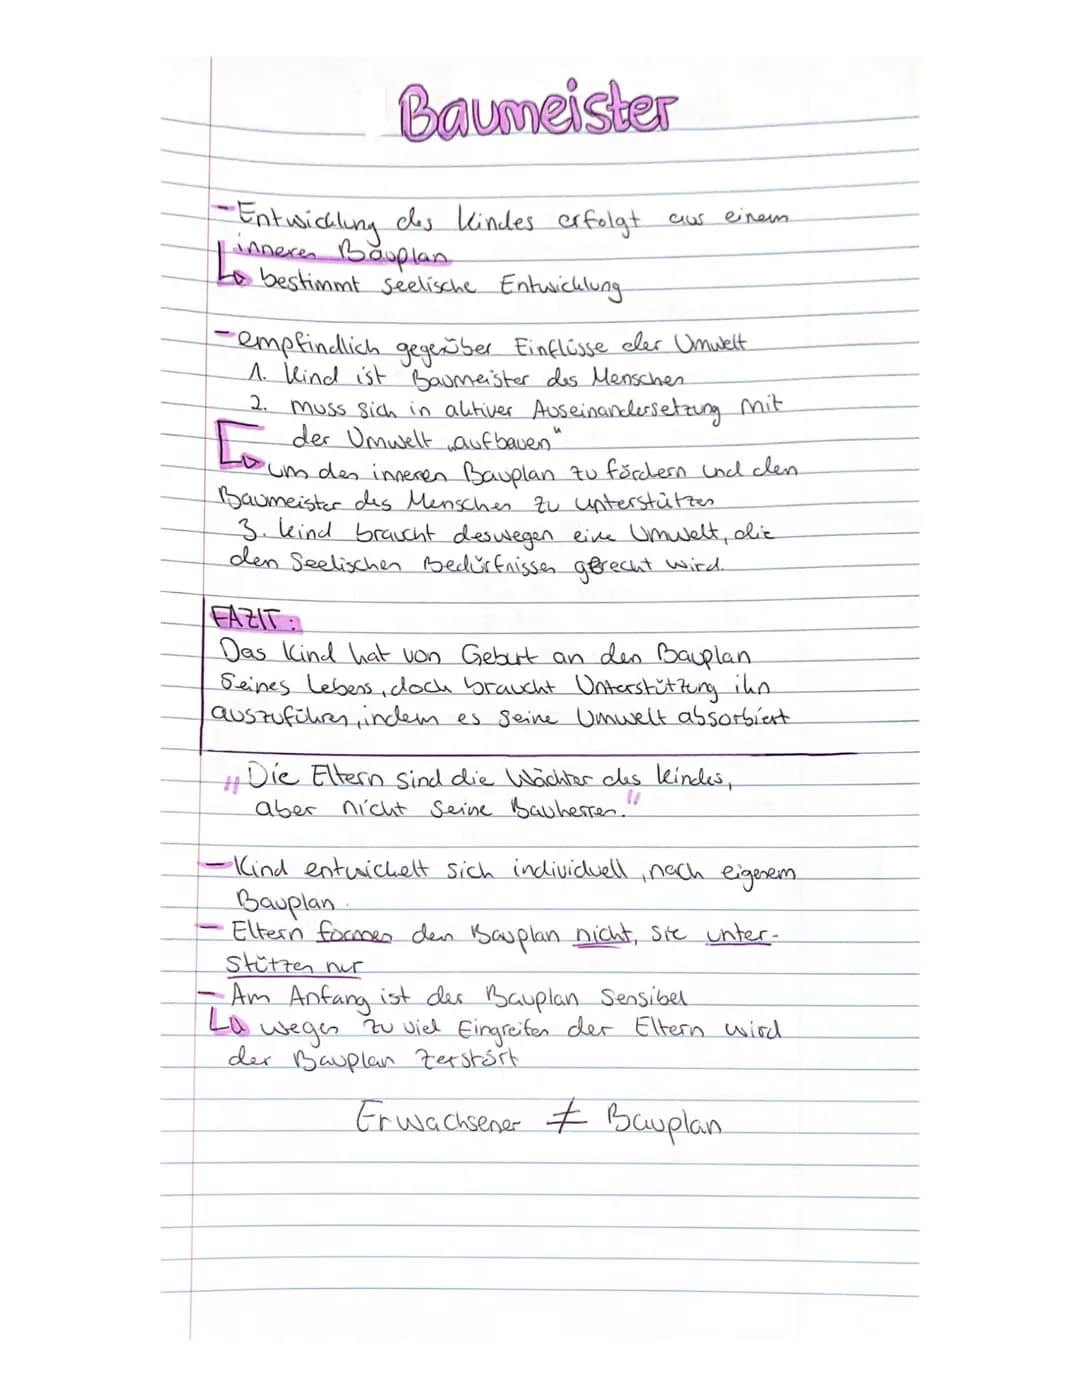 Baumeister
- Entwicklung des Kindes erfolgt aus einem
inneren Bauplan
↳ bestimmt seelische Entwicklung
- empfindlich gegenüber Einflüsse der Umwelt
1. Kind ist Baumeister des Menschen
2. muss sich in aktiver Auseinandersetzung mit
der Umwelt „aufbauen"
↳ um den inneren Bauplan zu fördern und den
Baumeister des Menschen zu unterstützen
3. Kind braucht deswegen eine Umwelt, die
den Seelischen Bedürfnissen gerecht wird.
FAZIT:
Das Kind hat von Geburt an den Bauplan
seines Lebens, doch braucht Unterstützung ihn
auszuführen, indem es seine Umwelt absorbiert
"Die Eltern sind die Wächter des Kindes,
aber nicht seine Bauherren."
- Kind entwickelt sich individuell, nach eigenem
Bauplan.
- Eltern formen den Bauplan nicht, sie unter-
stützen nur
- Am Anfang ist der Bauplan Sensibel
↳ wegen zu viel Eingreifen der Eltern wird
der Bauplan zerstört
Erwachsener ≠ Bauplan